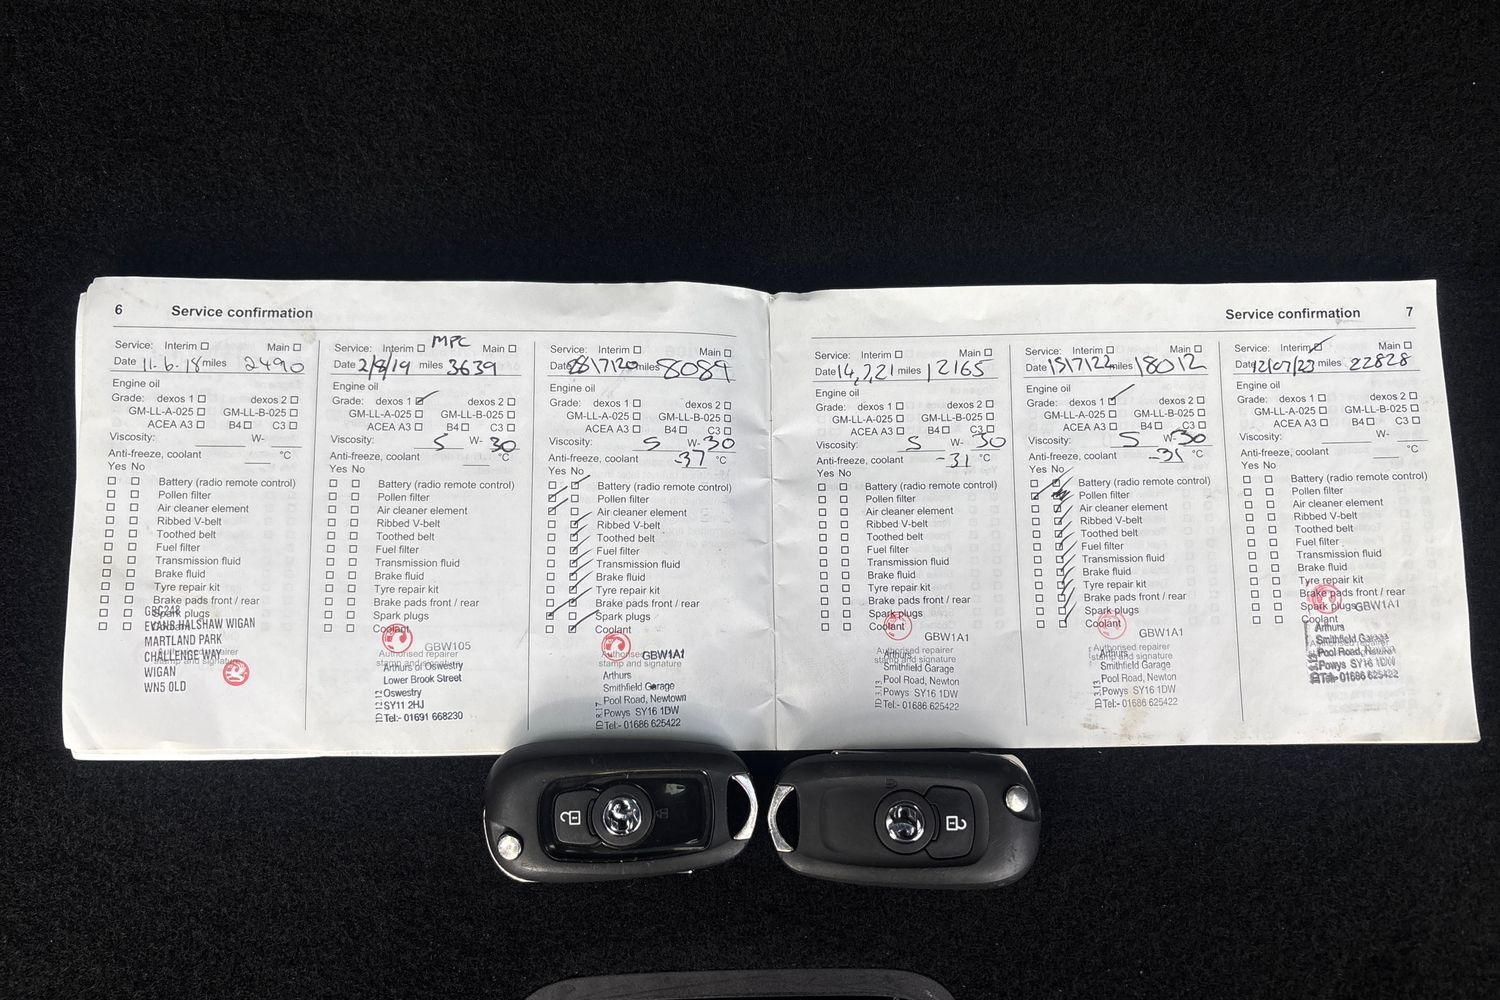 6 Service confirmation
Service: Interim Main
Date 11.6.18 miles 2490
Engine oil
Grade: dexos 1 dexos 2
GM-LL-A-025 GM-LL-B-025
ACEA A3 B4 C3
Viscosity: W-
Anti-freeze, coolant °C
Yes No
Battery (radio remote control)
Pollen filter
Air cleaner element
Ribbed V-belt
Toothed belt
Fuel filter
Transmission fluid
Brake fluid
Tyre repair kit
Brake pads front / rear
Spark plugs
GBC248
EVANS HALSHAW WIGAN
MARTLAND PARK
CHALLENGE WAY
Authorised repairer
stamp and signature
WIGAN
WN5 0LD
MPC
Service: Interim Main
Date 2/8/19 miles 3639
Engine oil
Grade: dexos 1 dexos 2
GM-LL-A-025 GM-LL-B-025
ACEA A3 B4 C3
Viscosity: 5 W- 30
Anti-freeze, coolant °C
Yes No
Battery (radio remote control)
Pollen filter
Air cleaner element
Ribbed V-belt
Toothed belt
Fuel filter
Transmission fluid
Brake fluid
Tyre repair kit
Brake pads front / rear
Spark plugs
Coolant
GBW105
Authorised repairer
stamp and signature
Arthurs of Oswestry
Lower Brook Street
Oswestry
SY11 2HJ
Tel:- 01691 668230
Service: Interim Main
Date 28/7/20 miles 8089
Engine oil
Grade: dexos 1 dexos 2
GM-LL-A-025 GM-LL-B-025
ACEA A3 B4 C3
Viscosity: 5 W- 30
Anti-freeze, coolant -37 °C
Yes No
Battery (radio remote control)
Pollen filter
Air cleaner element
Ribbed V-belt
Toothed belt
Fuel filter
Transmission fluid
Brake fluid
Tyre repair kit
Brake pads front / rear
Spark plugs
Coolant
GBW1A1
Authorised repairer
stamp and signature
Arthurs
Smithfield Garage
Pool Road, Newtown
Powys SY16 1DW
Tel:- 01686 625422
Service confirmation 7
Service: Interim Main
Date 14,7,21 miles 12165
Engine oil
Grade: dexos 1 dexos 2
GM-LL-A-025 GM-LL-B-025
ACEA A3 B4 C3
Viscosity: 5 W- 30
Anti-freeze, coolant -31 °C
Yes No
Battery (radio remote control)
Pollen filter
Air cleaner element
Ribbed V-belt
Toothed belt
Fuel filter
Transmission fluid
Brake fluid
Tyre repair kit
Brake pads front / rear
Spark plugs
Coolant
GBW1A1
Authorised repairer
stamp and signature
Arthurs
Smithfield Garage
Pool Road, Newton
Powys SY16 1DW
Tel:- 01686 625422
Service: Interim Main
Date 15/7/22 miles 18012
Engine oil
Grade: dexos 1 dexos 2
GM-LL-A-025 GM-LL-B-025
ACEA A3 B4 C3
Viscosity: 5 W- 30
Anti-freeze, coolant -31 °C
Yes No
Battery (radio remote control)
Pollen filter
Air cleaner element
Ribbed V-belt
Toothed belt
Fuel filter
Transmission fluid
Brake fluid
Tyre repair kit
Brake pads front / rear
Spark plugs
Coolant
GBW1A1
Authorised repairer
stamp and signature
Arthurs
Smithfield Garage
Pool Road, Newton
Powys SY16 1DW
Tel:- 01686 625422
Service: Interim Main
Date 12/07/23 miles 22828
Engine oil
Grade: dexos 1 dexos 2
GM-LL-A-025 GM-LL-B-025
ACEA A3 B4 C3
Viscosity: W-
Anti-freeze, coolant °C
Yes No
Battery (radio remote control)
Pollen filter
Air cleaner element
Ribbed V-belt
Toothed belt
Fuel filter
Transmission fluid
Brake fluid
Tyre repair kit
Brake pads front / rear
Spark plugs GBW1A1
Coolant
Arthurs
Smithfield Garage
Pool Road, Newton
Powys SY16 1DW
Tel:- 01686 625422